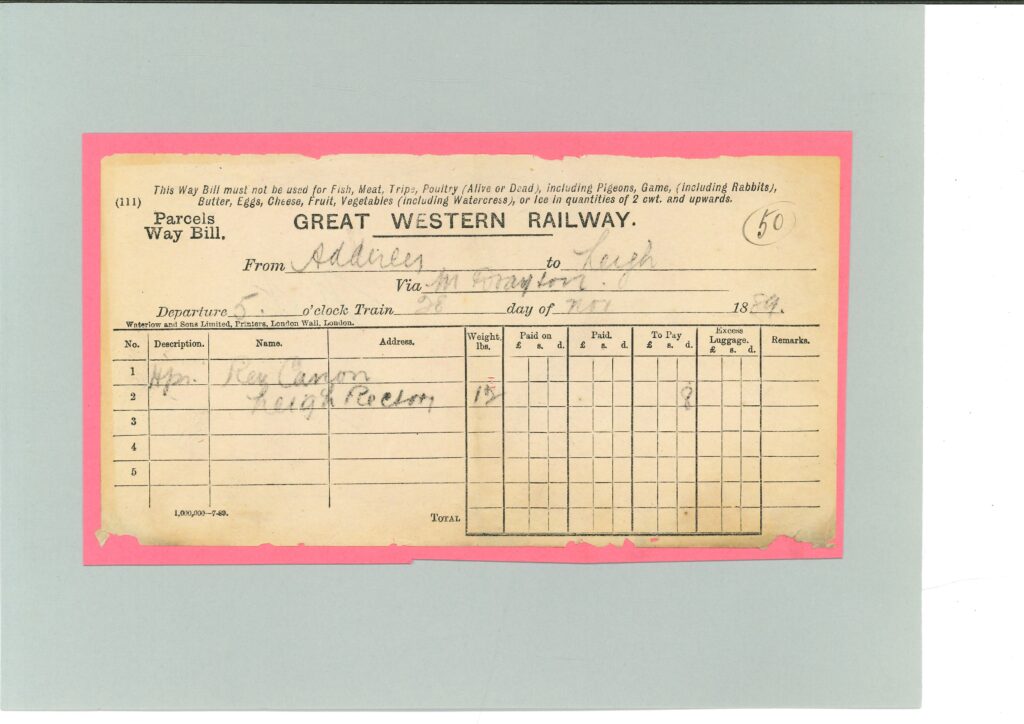 This Way Bill must not be used for Fish, Meat, Tripe, Poultry (Alive or Dead), including Pigeons, Game, (including Rabbits),
(111) Butter, Eggs, Cheese, Fruit, Vegetables (including Watercress), or Ice in quantities of 2 cwt. and upwards.
Parcels Way Bill. GREAT WESTERN RAILWAY. 50
From Adderley to Leigh
Via M Drayton.
Departure 5. o'clock Train 28 day of Nov 1889.
Waterlow and Sons Limited, Printers, London Wall, London.
No. Description. Name. Address. Weight, lbs. Paid on £ s. d. Paid. £ s. d. To Pay £ s. d. Excess Luggage. £ s. d. Remarks.
1 Rev Canon
2 Leigh Rectory 8
3
4
5
1,000,000—7-89. TOTAL